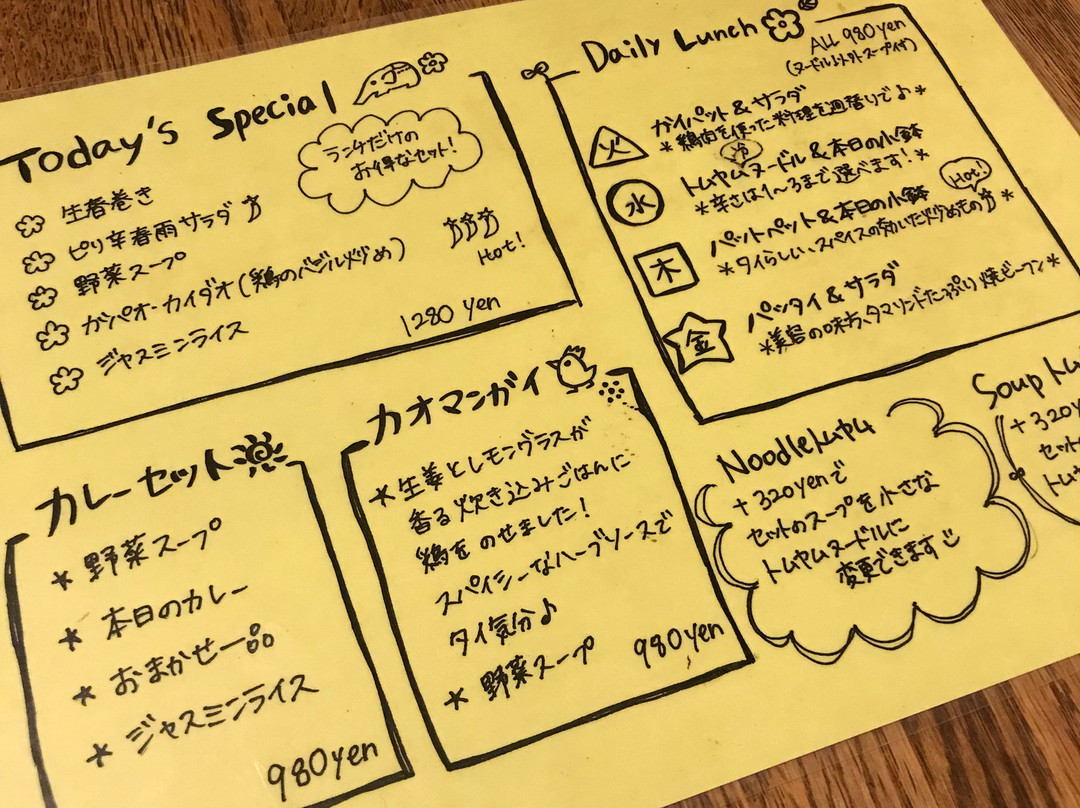 Today's Special
ランチだけの
お得なセット!
生春巻き
ピリ辛春雨サラダ
野菜スープ
ガパオ・カイダオ(鶏のバジル炒め)
Hot!
ジャスミンライス
1280 yen
Daily Lunch
ALL 980yen
火
ガイパット&サラダ
*鶏肉を使った料理を週替りで♪*
水
トムヤムヌードル&本日の小鉢
*辛さは1~3まで選べます!*
木
パットペット&本日の小鉢
Hot!
*タイらしい、スパイスの効いた炒めもの*
金
パッタイ&サラダ
*美容の味方、タマリンドたっぷり焼ビーフン*
カレーセット
*野菜スープ
*本日のカレー
*おまかせ一品
*ジャスミンライス
980yen
カオマンガイ
*生姜とレモングラスが
香る炊き込みごはんに
鶏をのせました!
スパイシーなハーブソースで
タイ気分♪
*野菜スープ
980yen
Noodleトムヤム
+320yenで
セットのスープを小さな
トムヤムヌードルに
変更できます
Soup トム
+320y
セット
トム